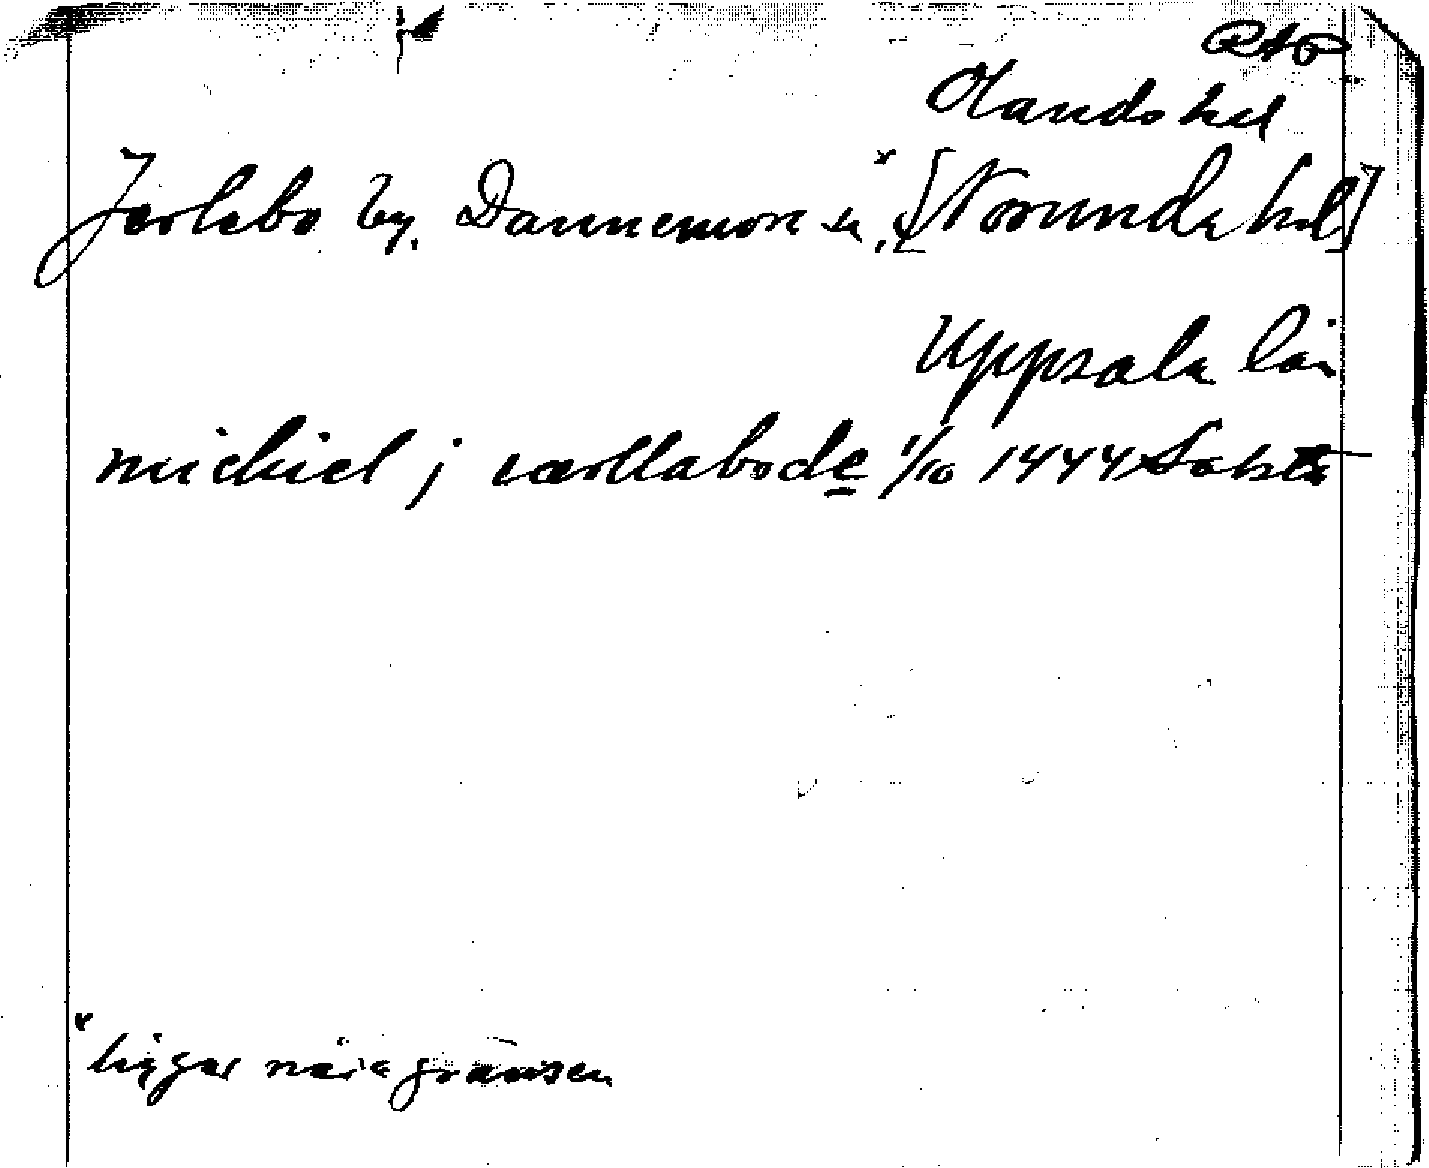 RAP
Olands hd
Jerlebo by, Dannemora sn, [Norunda hd]
Uppsala län
michiel j iærllabode 1/10 1444
ligger nära gränsen